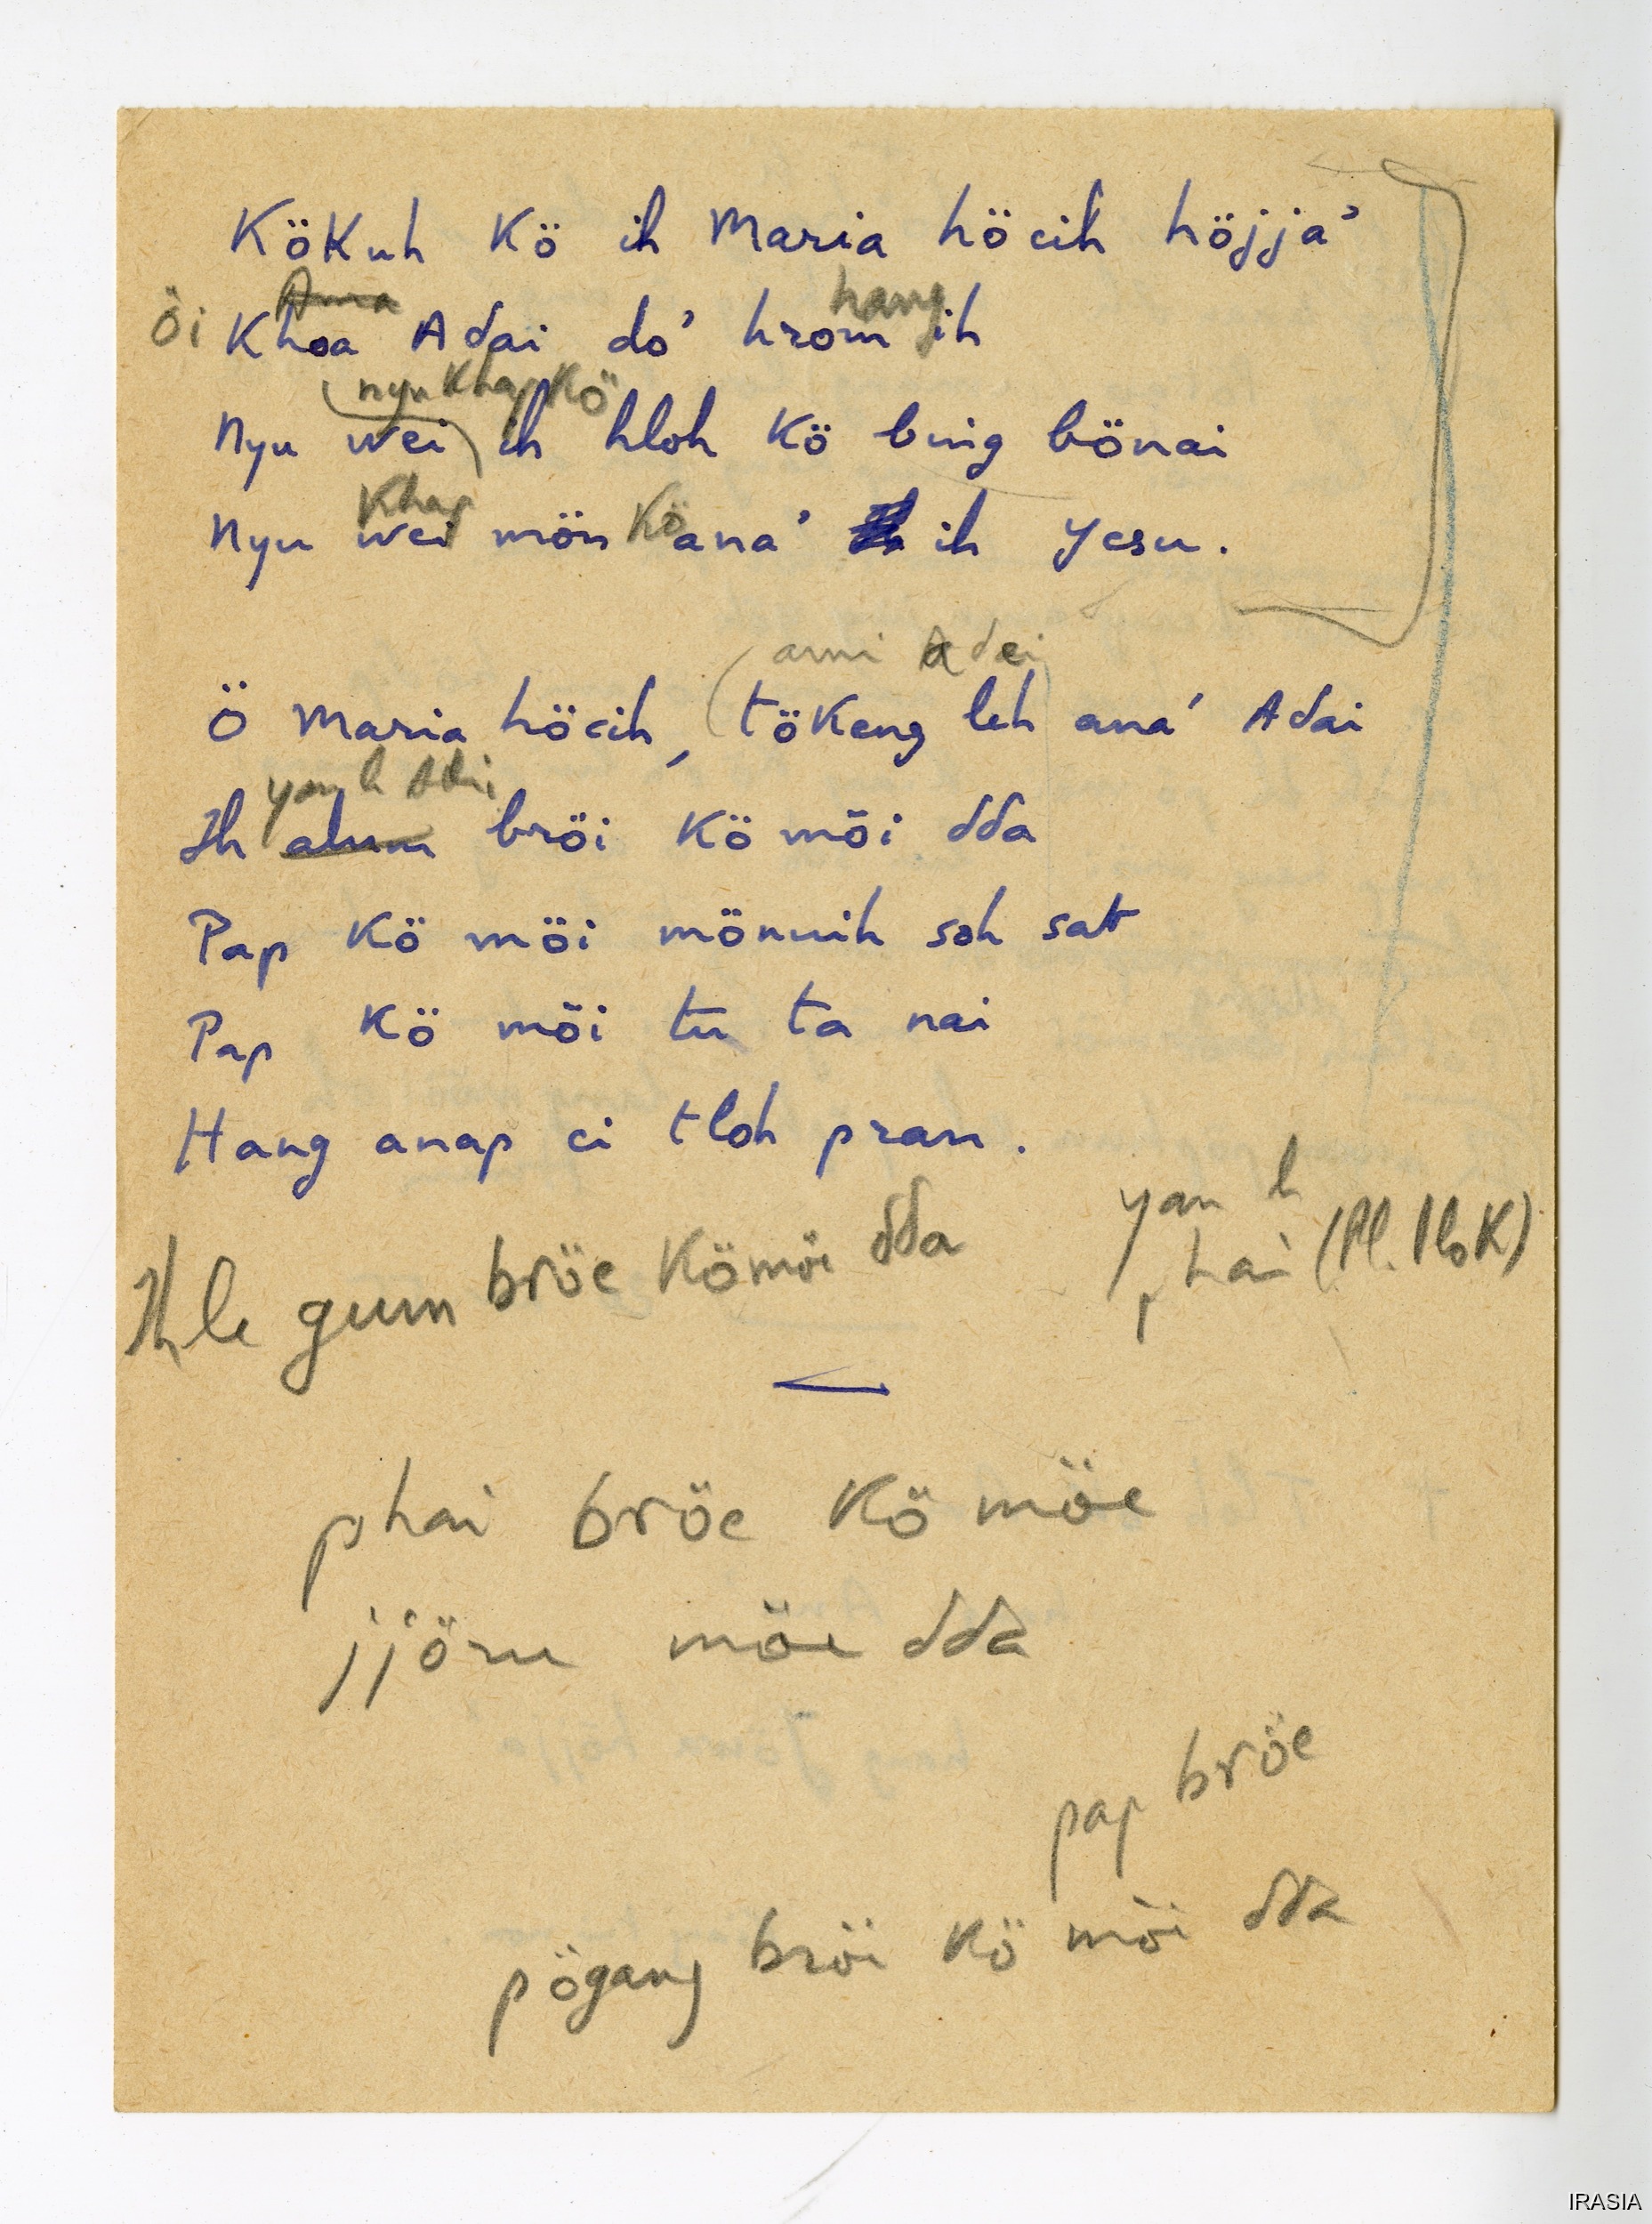 Kökuh kö ih Maria höcih höjja'
Ama hang
öi Khoa Adai do' hrom ih
nyu khap kö
Nyu wei ih hloh kö bing bönai
khap kö
Nyu wei mön ana' ih Yesu.
ami Adei
Ö Maria höcih, tökeng leh ana' Adai
yau h
Ih alum bröi kö möi dda
Pap kö möi mönuih soh sat
Pap kö möi tu ta nai
Hang anap ci tloh pran.
yau h
Ih le gum bröe kömöi dda
phai (Pl. Ilok)
phai bröe kö möe
jjöru möe dda
pap bröe
pögang bröi kö möi dda
IRASIA